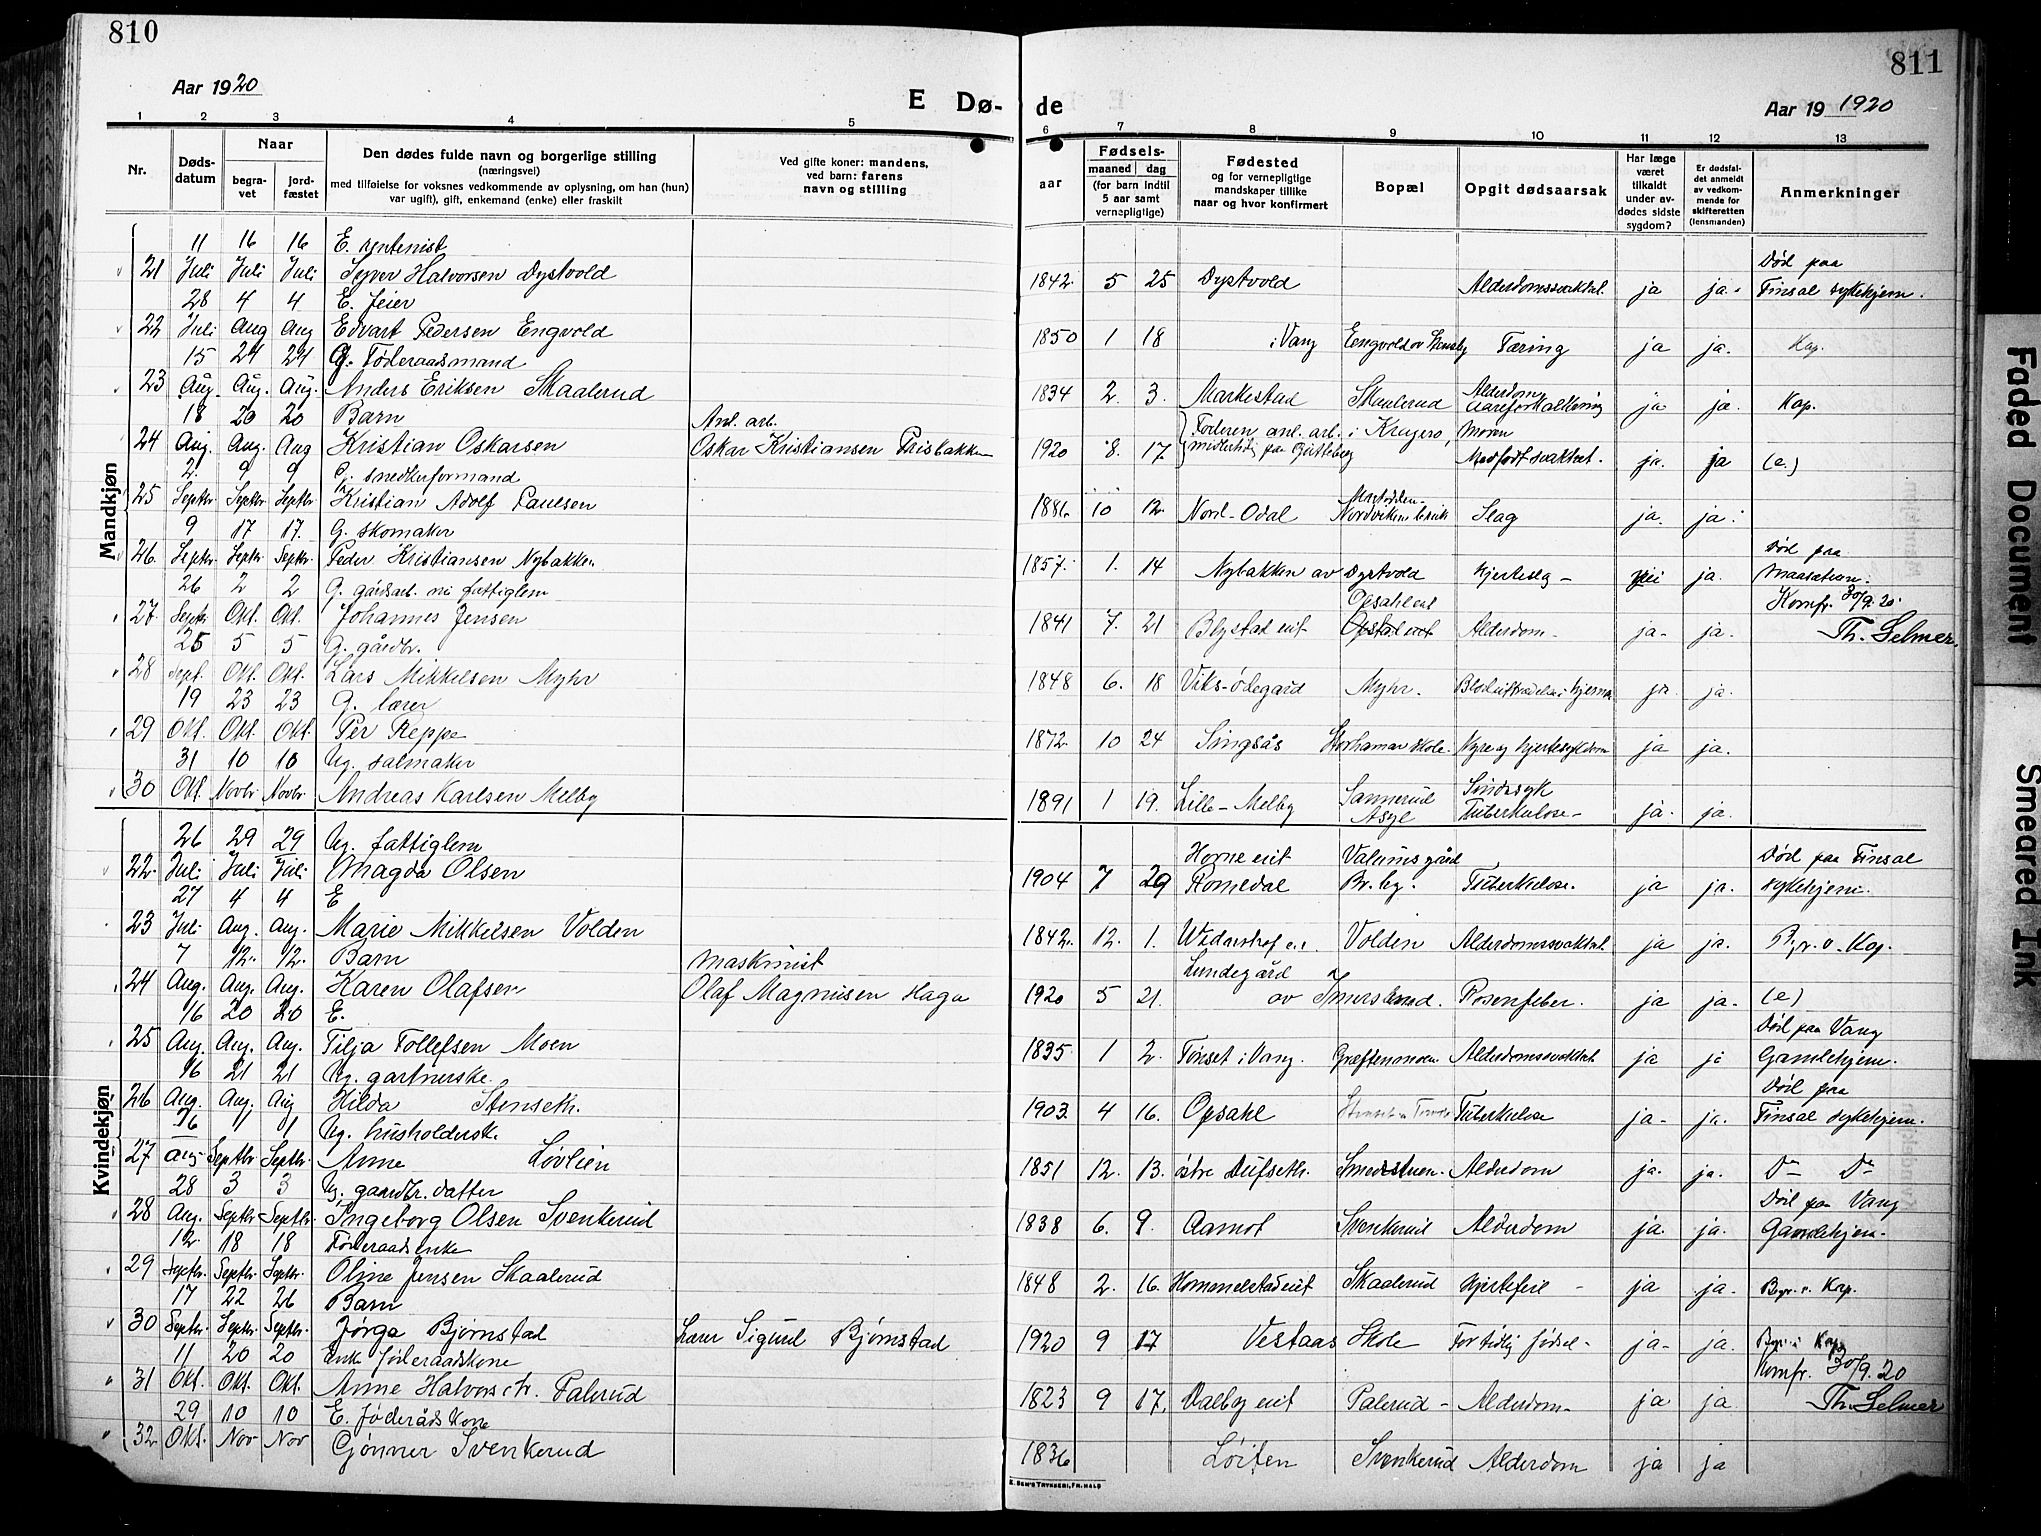 810
Aar 1920
E Dø-
1 2 3 4 5
Nr.
Døds-
datum
Naar
begra-
vet
jord-
fæstet
Den dødes fulde navn og borgerlige stilling
(næringsvei)
med tilføielse for voksnes vedkommende av oplysning, om han (hun)
var ugift), gift, enkemand (enke) eller fraskilt
Ved gifte koner: mandens,
ved barn: farens
navn og stilling
Mandkjøn
11 16 16 E. rentenist
21 Juli Juli Juli Syver Halvorsen Dystvold
28 4 4 E. feier
22 Juli Aug Aug Edvart Pedersen Engvold
15 24 24 G. Føderaadsmand
23 Aug. Aug. Aug. Anders Eriksen Skaalerud
18 20 20 Barn Anl. arb.
24 Aug. Aug. Aug Kristian Oskarsen Oskar Kristiansen Frisbakken
2. 9 9 G. snedkerformand
25 Septbr Septbr Septbr Kristian Adolf Paulsen
9 17 17. G. skomaker
26. Septbr Septbr. Septbr. Peder Kristiansen Nybakken
26 2 2 G. gårdsarb. nu fattiglem
27. Septbr Okt. Okt. Johannes Jensen
25 5 5 G. gårdbr.
28 Sept. Okt. Okt. Lars Mikkelsen Myhr
19 23 23 G. lærer
29 Okt. Okt. Okt. Per Reppe
31 10 10 Ug. salmaker
30 Okt. Novbr Novbr. Andreas Karlsen Melby
Kvindekjøn
26 29 29 Ug. fattiglem
22. Juli Juli Juli Magda Olsen
27 4 4 E
23 Juli Aug. Aug. Marie Mikkelsen Volden
7 12. 12. Barn maskinist
24 Aug. Aug. Aug. Karen Olafsen Olaf Magnusen Haga
16 20 20 E.
25 Aug. Aug. Aug. Tilja Tollefsen Moen
16 21 21 Ug. gartnerske.
26 Aug. Aug. Aug Hilda Stenseth.
26 1 1 Ug. husholdersk.
27 Aug Septbr Septbr. Anne Løvlien
28 3 3 Ug. gaardbr. datter
28 Aug. Septbr Septbr. Ingeborg Olsen Svenkerud
12 18 18 Føderaadsenke
29 Septbr. Septbr. Septbr. Oline Jensen Skaalerud
17 22 26 Barn
30 Septbr. Septbr. Septbr. Jørga Bjørnstad Lærer Sigurd Bjørnstad
11 20 20 Enke føderaadskone
31 Okt. Okt. Okt. Anne Halvorsdtr. Palerud
29 10 10 E. føderådskone
32 Okt. Nov Nov Gjønner Svenkerud
811
de
Aar 19 1920
6 7 8 9 10 11 12 13
Fødsels-
aar
maaned dag
(for barn indtil
5 aar samt
vernepligtige)
Fødested
og for vernepligtige
mandskaper tillike
naar og hvor konfirmert
Bopæl
Opgit dødsaarsak
Har læge
været
tilkaldt
under av-
dødes sidste
sygdom?
Er dødsfal-
det anmeldt
av vedkom-
mende for
skifteretten
(lensmanden)
Anmerkninger
Død paa
1842 5 25 Dystvold Alderdomssvakhet. ja ja. Finsal sykehjem.
1850 1 18 i Vang Tæring ja ja. Kap.
1834 2. 3. Markestad Skaalerud Alderdom aareforkalkning ja ja. Kap.
1920 8. 17. Faderen anl. arb. i Kragerø, Moren
midlertidig paa Medfødt svakhet. ja. ja (e.)
1886 10 12. Nord-Odal Slag ja. ja.
Død paa
1857. 1. 14 Nybakken av Dystvold hjerteslag - nei ja.
Opsahl eit Komfr. 30/9. 20.
1841 7. 21 Blystad eit Alderdom - ja- ja. Th. Selmer.
1848 6. 18 Viks-ødegard Myhr. ja ja.
1872 10 24 Singsås Storhamar skole. Nyre og hjertesykdom ja ja.
Sindssyk
1891 1 19. Lille-Melby Sannerud Asyl Tuberkulose- ja. ja.
Horne eit Valumsgård Død paa Finsal
1904 7 29 Romedal Tuberkulose. ja ja. sykehjem.
1842. 12. 1. Volden Alderdomssvakhet. ja ja. Bgr. v. Kap.
Lundegård
1920 5 21. av Imerslund. Rosenfeber. ja ja. (e)
Død paa Vang
1835 1 2. Tønset i Vang. Græftenmoen Alderdomssvakhet ja ja Gamlehjem.
Død paa
1903. 4 16. Opsahl Tuberkulose ja- ja. Finsal sykehjem.
1851 12. 13. østre Dufseth. Smedstuen. Alderdom ja. ja. Do Do
Død paa Vang
1838 6. 9. Aamot Svenkerud Alderdom ja. ja. Gamlehjem.
1848 2. 16. Hommelstad eit Skaalerud Hjertefeil - ja ja. Begr. v. Kap.
1920 9 17 Vestaas Skole For tidlig fødsel- ja- ja. Begr. i Kap.
Komfr. 30/9. 20
1823 9 17. Dalby eit Palerud - Alderdom- ja ja. Th. Selmer
1836 Løiten Svenkerud Alderdom ja ja
E. SEM'S TRYKKERI, FR.HALD
Faded Document
Smeared Ink